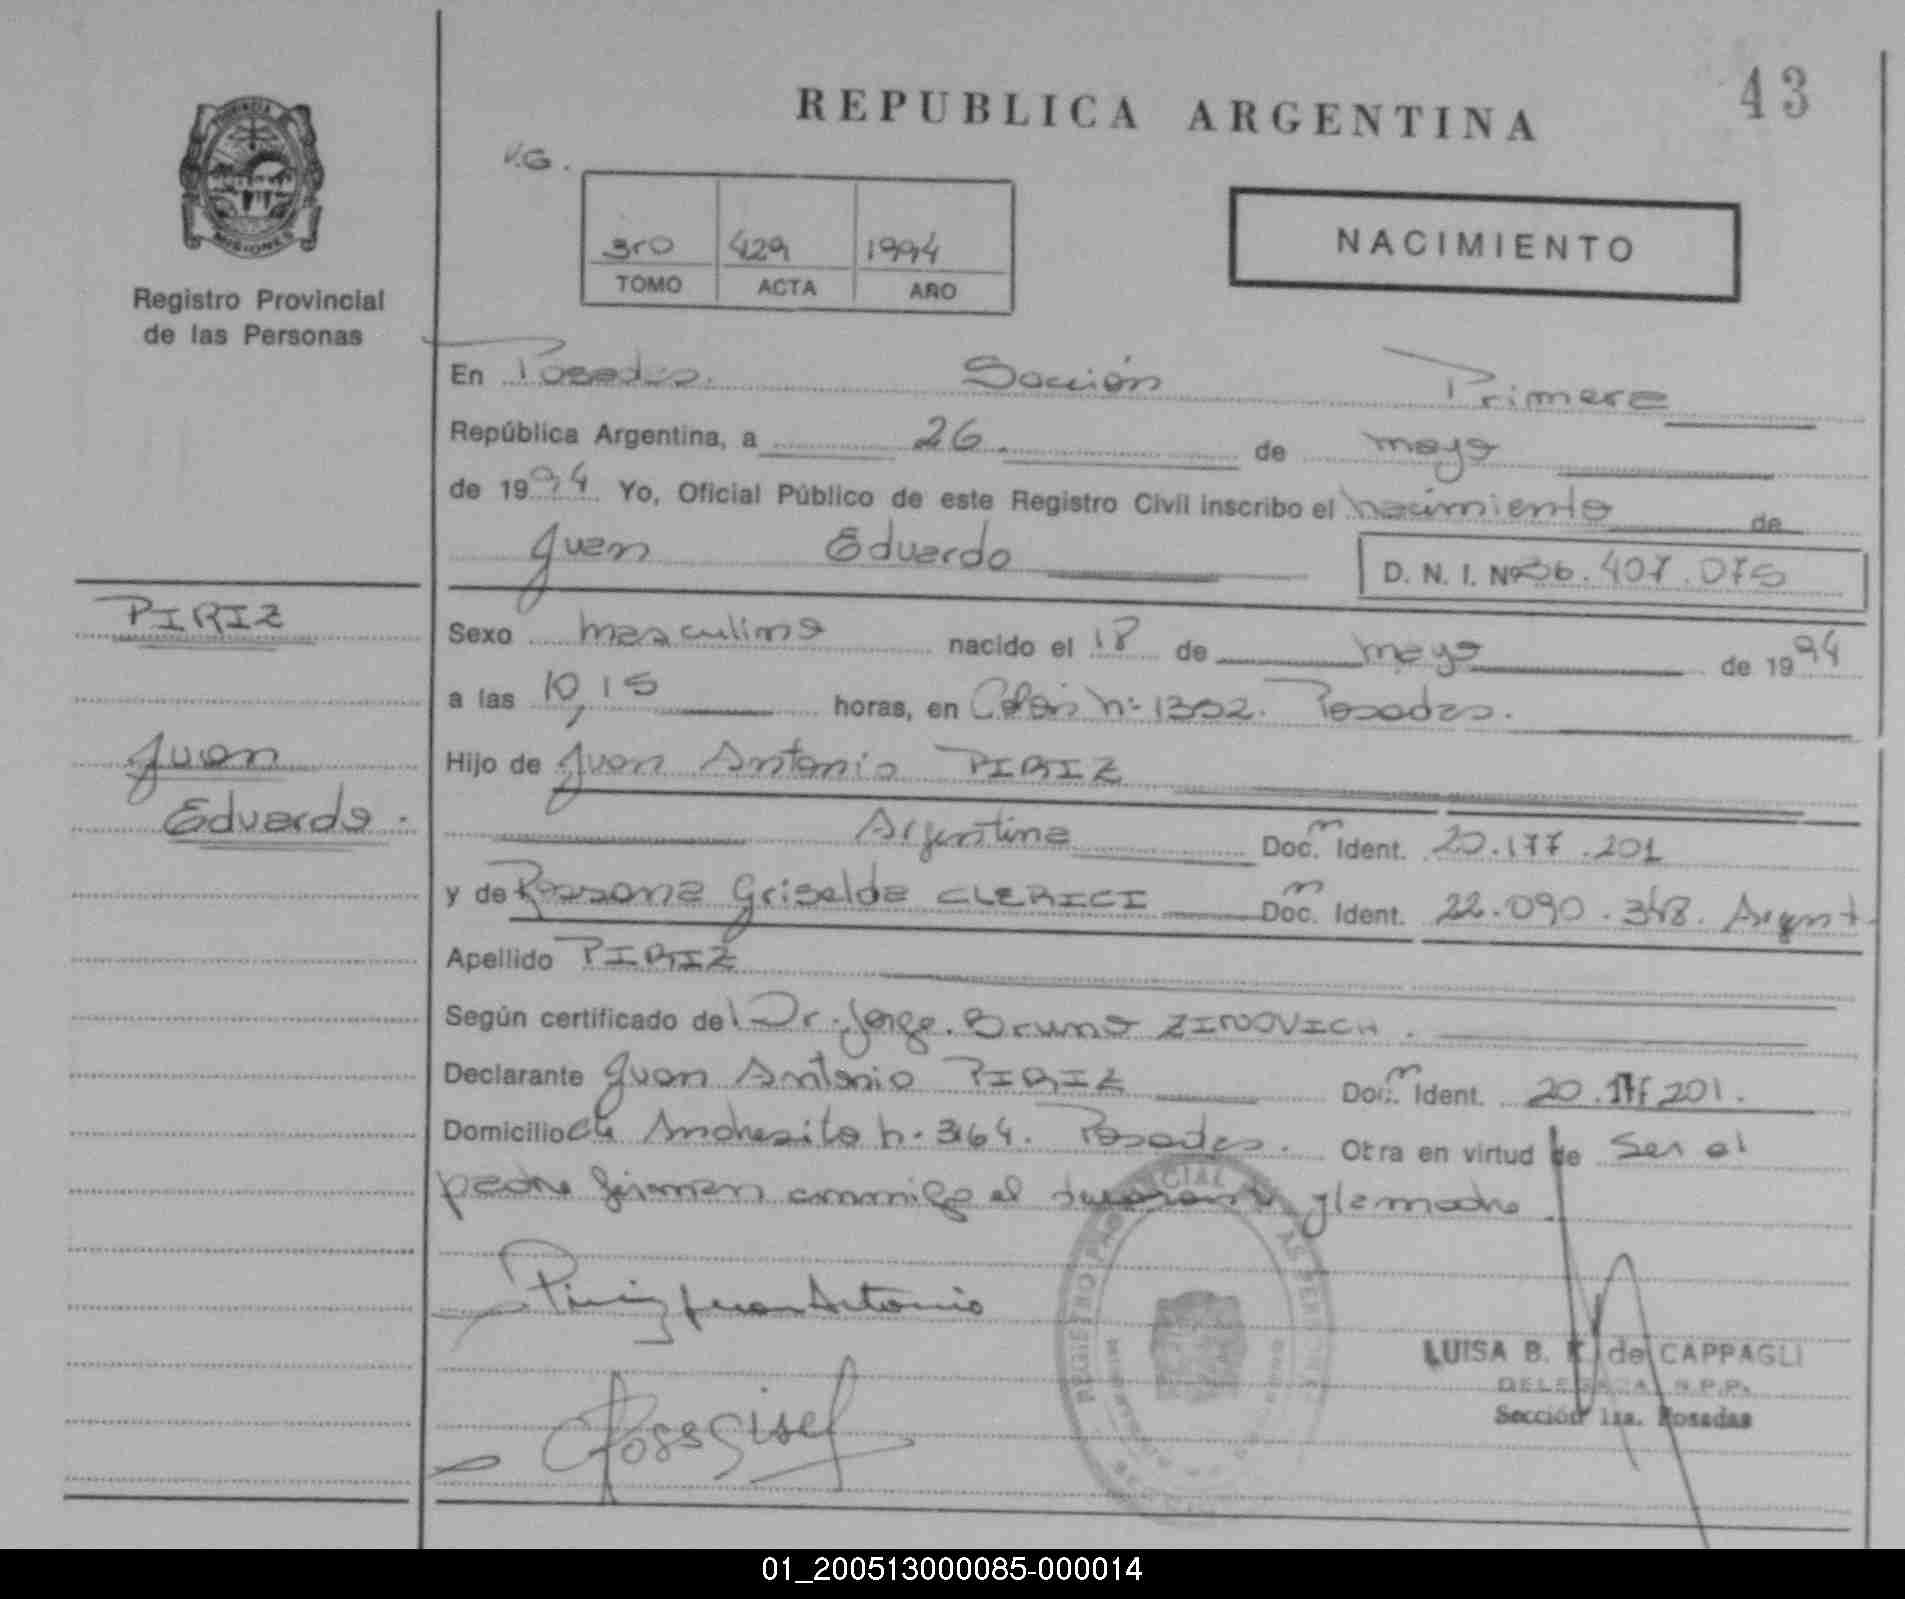 43
REPUBLICA ARGENTINA
V.G.
NACIMIENTO
3ro 429 1994
TOMO ACTA AÑO
MISIONES
Registro Provincial
de las Personas
En Posadas. Sección Primera
República Argentina, a 26 de mayo
de 1994 Yo, Oficial Público de este Registro Civil inscribo el nacimiento de
Juan Eduardo D. N. I. Nº 36.407.075
PIRIZ
Juan
Eduardo.
Sexo masculino nacido el 18 de mayo de 1994
a las 10,15 horas, en Colón nº 1302. Posadas.
Hijo de Juan Antonio PIRIZ
Argentina Doc. Ident. 20.177.201
y de Rossana Griselda CLERICI Doc. Ident. 22.090.348. Argent.
Apellido PIRIZ
Según certificado del Dr. Jorge Bruno ZINOVICH.
Declarante Juan Antonio PIRIZ Doc. Ident. 20.177.201.
Domicilio Andresito n. 3164. Posadas. Otra en virtud de Ser el
padre firman conmigo el declarante y la madre.
Piriz Juan Antonio
LUISA B. K. de CAPPAGLI
DELEGADA R.P.P.
Sección 1ra. Posadas
01_200513000085-000014